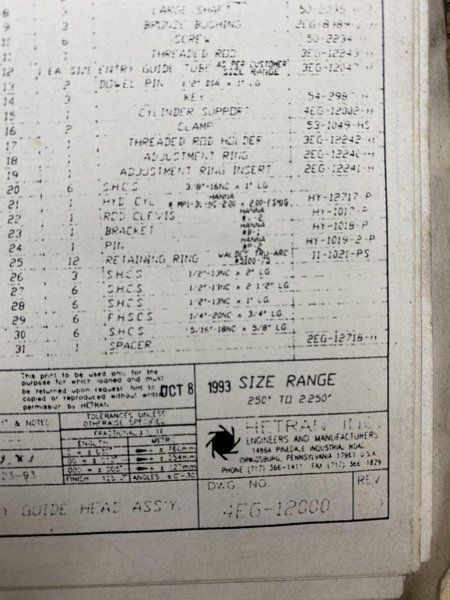 8 LARGE SHAFT
9 2 BRONZE BUSHING
10 6 SCREW 50-2234-
11 1 THREADED ROD 3EG-12243-H
12 1 EA. SIZE ENTRY GUIDE TUBE AS PER CUSTOMER SIZE RANGE 3EG-12047-H
13 2 DOWEL PIN 1/2" DIA x 1" LG
14 3 KEY
15 1 CYLINDER SUPPORT 4EG-12002-H
16 2 CLAMP 53-1049-HS
17 1 THREADED ROD HOLDER 3EG-12242-H
18 1 ADJUSTMENT RING 2EG-12240-H
19 1 ADJUSTMENT RING INSERT 2EG-12241-H
20 6 S.H.C.S. 3/8"-16NC x 1" LG
21 1 HYD CYL HANNA HY-12717-P
22 1 ROD CLEVIS HANNA HY-1017-P
23 1 BRACKET HANNA HY-1018-P
24 1 PIN HANNA HY-1019-2-P
25 12 RETAINING RING WALDES TRU-ARC 11-1021-PS
26 6 S.H.C.S 1/2"-13NC x 2" LG
27 6 S.H.C.S 1/2"-13NC x 2 1/2" LG
28 6 S.H.C.S 1/2"-13NC x 1" LG
29 6 F.H.S.C.S 1/4"-20NC x 3/4" LG
30 6 S.H.C.S 5/16"-18NC x 5/8" LG
31 1 SPACER 2EG-12718-H
This print to be used only for the
purpose for which loaned and must
be returned upon request. Not to be
copied or reproduced without written
permission by HETRAN.
OCT 8 1993
SIZE RANGE
.250" TO 2.250"
TOLERANCES UNLESS
OTHERWISE SPECIFIED
ENGLISH METRIC
FINISH 125 ANGLES
23-93
HETRAN INC
ENGINEERS AND MANUFACTURERS
1486A PINEDALE INDUSTRIAL ROAD
ORWIGSBURG, PENNSYLVANIA 17961 U.S.A.
PHONE (717) 366-1411 FAX (717) 366 1829
DWG. NO. REV
4EG-12000
Y GUIDE HEAD ASS'Y.